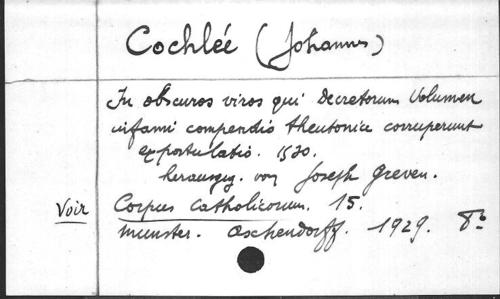 Cochlée (Johannes)
In obscuros viros qui Decretorum Volumen
infami compendio theutonice corruperunt
expostulatio. 1530.
herausgeg. von Joseph Greven.
Voir Corpus catholicorum. 15.
Munster. Aschendorff. 1929. 8°